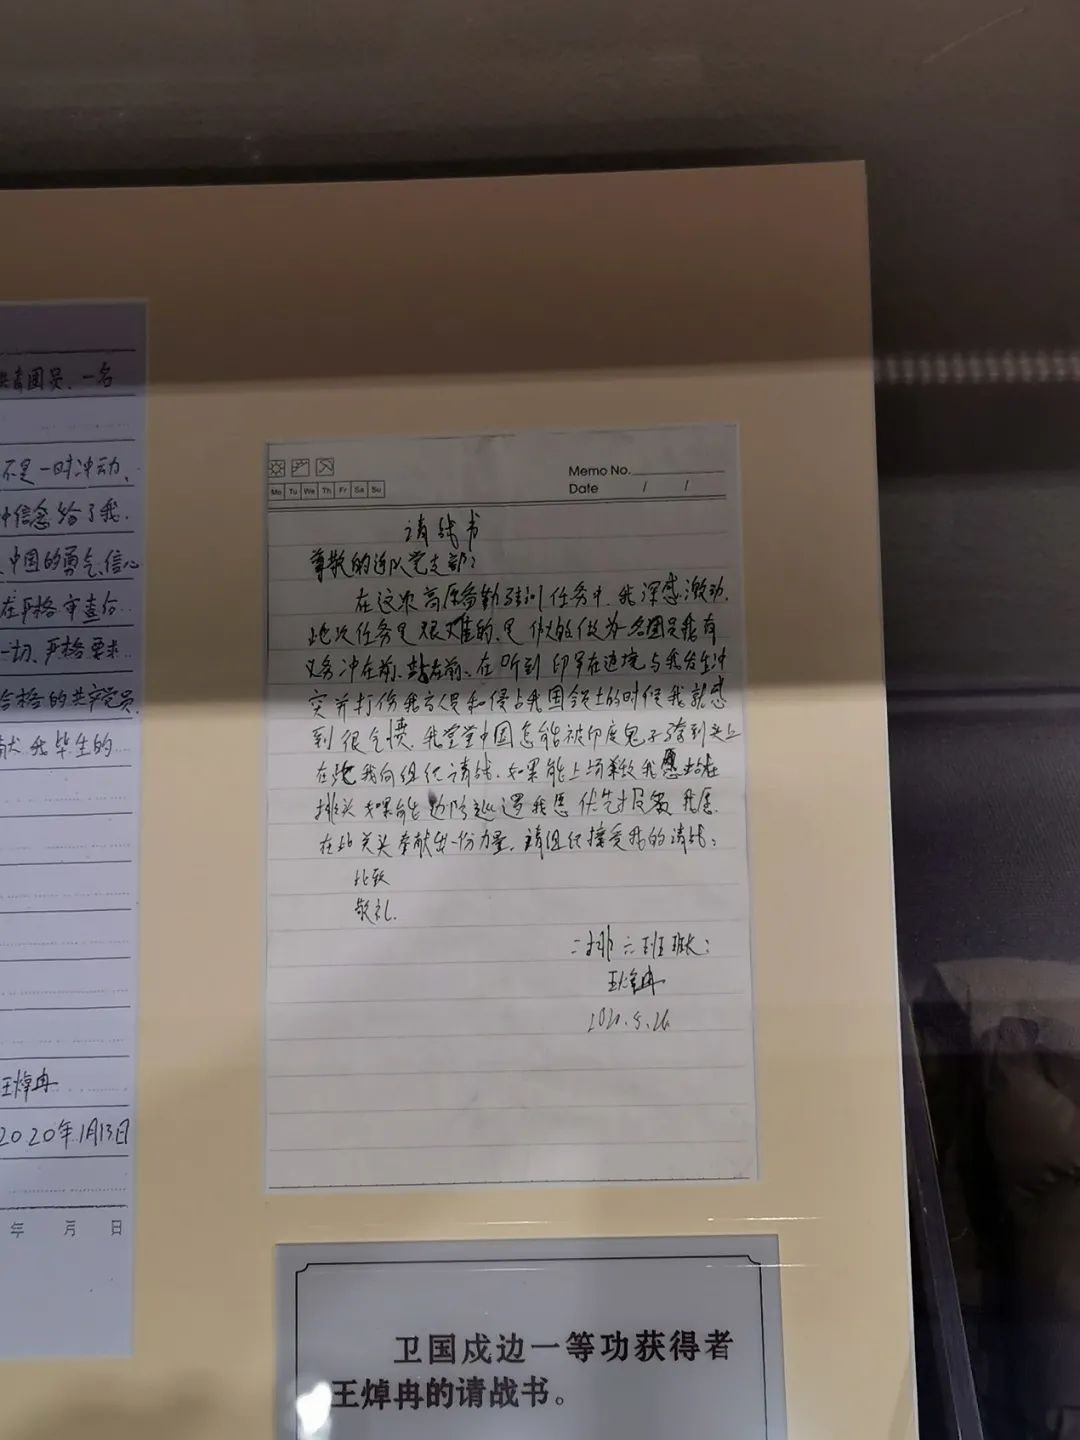 共青团员、一名
不是一时冲动、
信念给了我.
中国的勇气、信心
在严格审查后
一切、严格要求
合格的共产党员.
献我毕生的
王焯冉
2020年1月13日
年 月 日
Memo No.
Mo Tu We Th Fr Sa Su
Date / /
请战书
尊敬的连队党支部：
在这次高原备勤驻训任务中,我深感激动.
此次任务是艰难的、是伟大的做为一名团员我有
义务冲在前、站在前、在听到印军在边境与我发生冲
突并打伤我方人员和侵占我国领土的时候我就感
到很气愤.我堂堂中国怎能被印度鬼子骑到头上
在此我向组织请战.如果能上场我愿站在
排头如果能边防巡逻我愿我愿
在此关头奉献出一份力量.请组织接受我的请战:
此致
敬礼.
二排六班班长:
王焯冉
2020.5.26
卫国戍边一等功获得者
王焯冉的请战书。